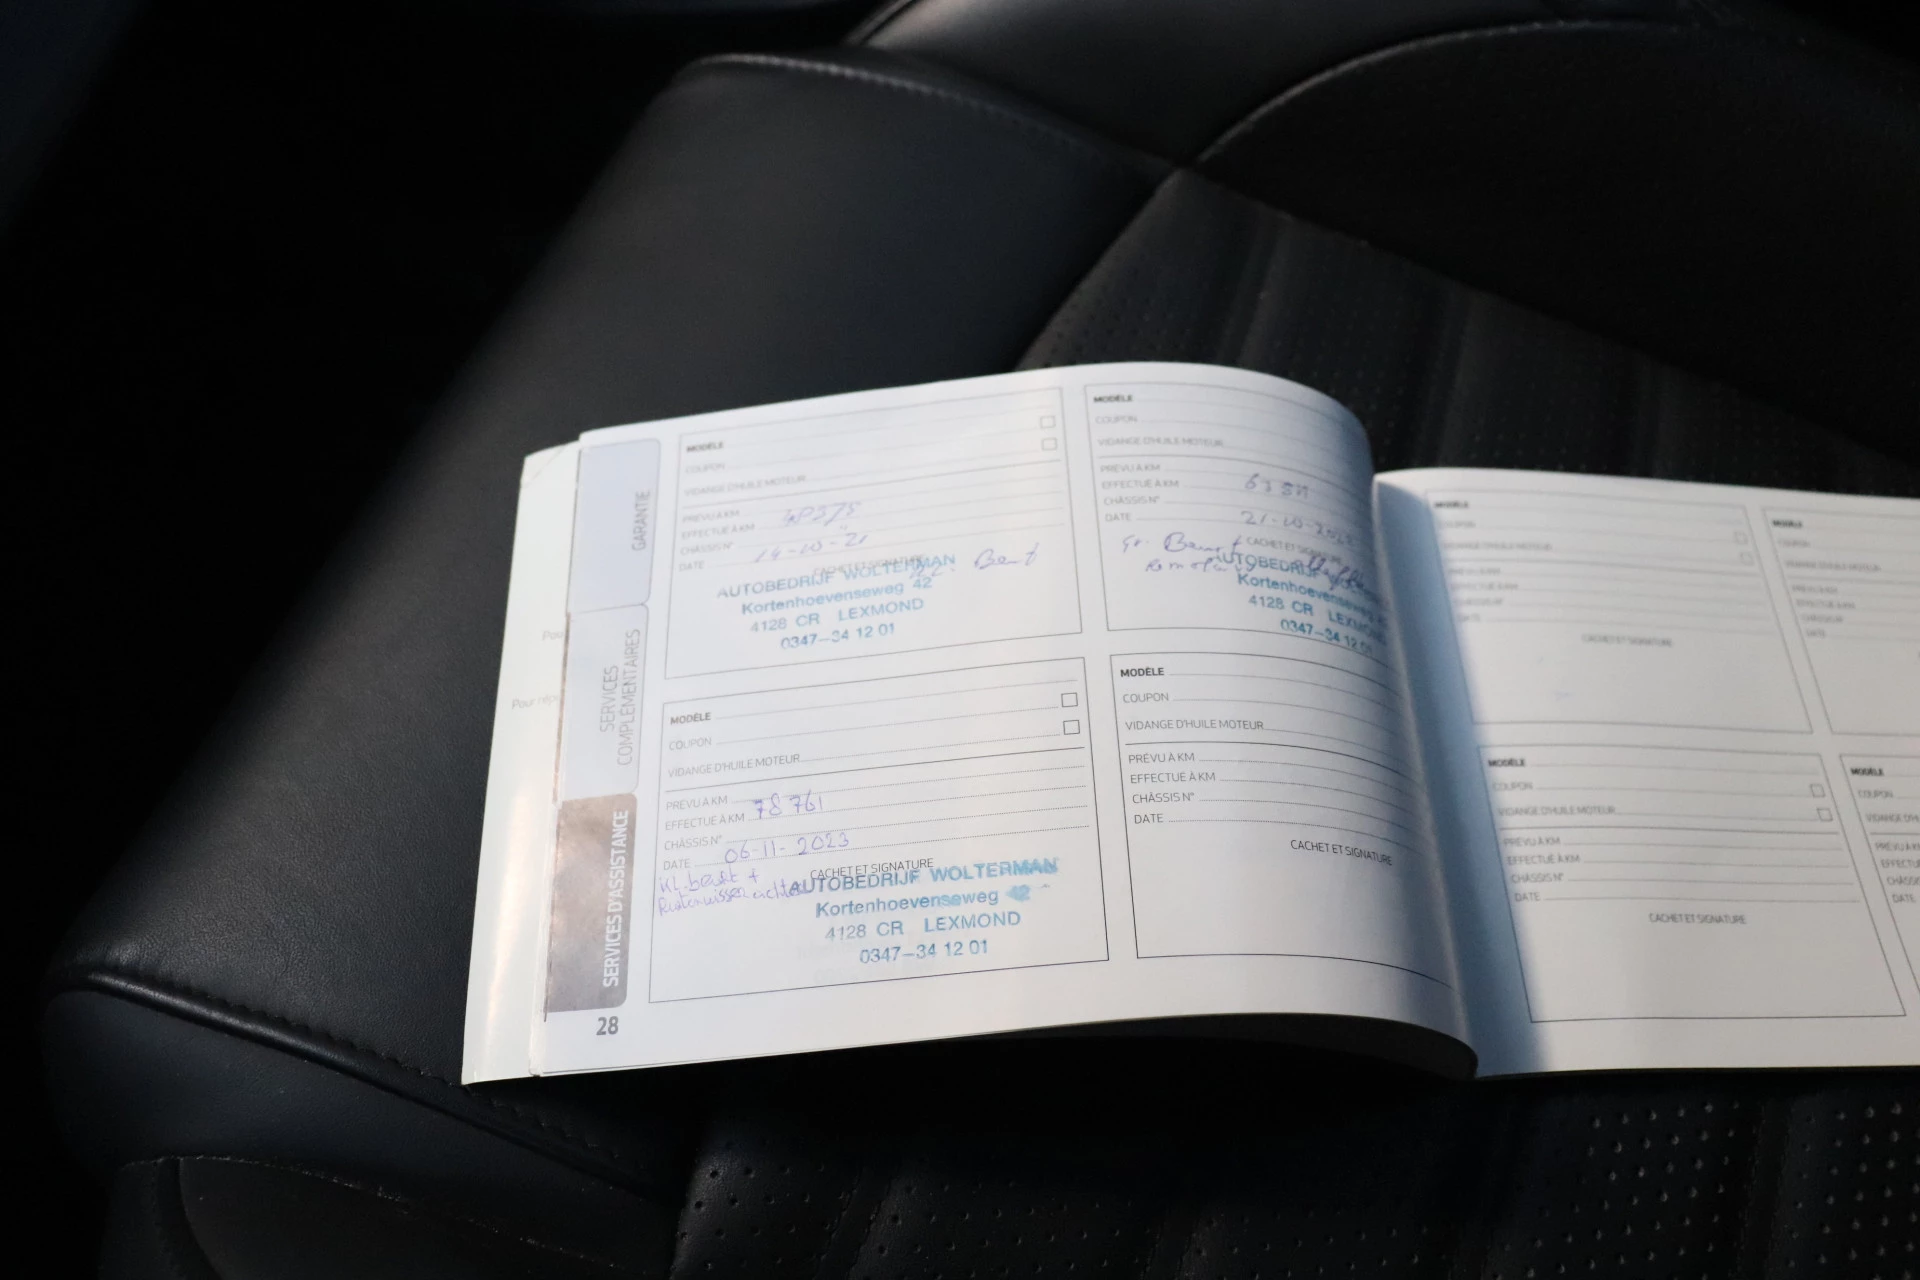 GARANTIE
SERVICES
COMPLÉMENTAIRES
SERVICES D'ASSISTANCE
28
Pou
Pour répa
MODÈLE
COUPON
VIDANGE D'HUILE MOTEUR
PRÉVU À KM
EFFECTUÉ À KM
CHÂSSIS N°
DATE 14-10-21
CACHET ET SIGNATURE
AUTOBEDRIJF WOLTERMAN
Kortenhoevenseweg 42
4128 CR LEXMOND
0347-34 12 01
MODÈLE
COUPON
VIDANGE D'HUILE MOTEUR
PRÉVU À KM
EFFECTUÉ À KM
CHÂSSIS N°
DATE 21-10-2022
CACHET ET SIGNATURE
AUTOBEDRIJF
Kortenhoevenseweg
4128 CR LEXMOND
0347-34 12 01
MODÈLE
COUPON
VIDANGE D'HUILE MOTEUR
PRÉVU À KM
EFFECTUÉ À KM 78 761
CHÂSSIS N°
DATE 06-11-2023
CACHET ET SIGNATURE
Kl. beurt +
Ruitenwisser achter
AUTOBEDRIJF WOLTERMAN
Kortenhoevenseweg 42
4128 CR LEXMOND
0347-34 12 01
MODÈLE
COUPON
VIDANGE D'HUILE MOTEUR
PRÉVU À KM
EFFECTUÉ À KM
CHÂSSIS N°
DATE
CACHET ET SIGNATURE
MODÈLE
COUPON
VIDANGE D'HUILE MOTEUR
PRÉVU À KM
EFFECTUÉ À KM
CHÂSSIS N°
DATE
CACHET ET SIGNATURE
MODÈLE
COUPON
VIDANGE D'HUILE MOTEUR
PRÉVU À KM
EFFECTUÉ À KM
CHÂSSIS N°
DATE
MODÈLE
COUPON
VIDANGE D'HUILE MOTEUR
PRÉVU À KM
EFFECTUÉ À KM
CHÂSSIS N°
DATE
CACHET ET SIGNATURE
MODÈLE
COUPON
VIDANGE D'HU
PRÉVU À K
EFFECTU
CHÂSS
DATE